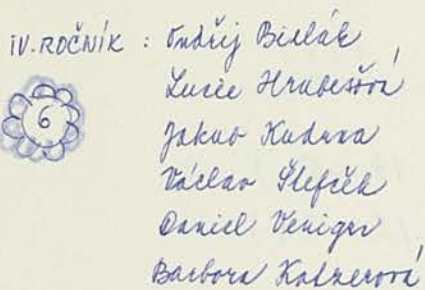 IV. ROČNÍK : Ondřej Bielák
Lucie Hrubešová
6
Jakub Kudrna
Václav Štefček
Daniel Veniger
Barbora Kotnerová